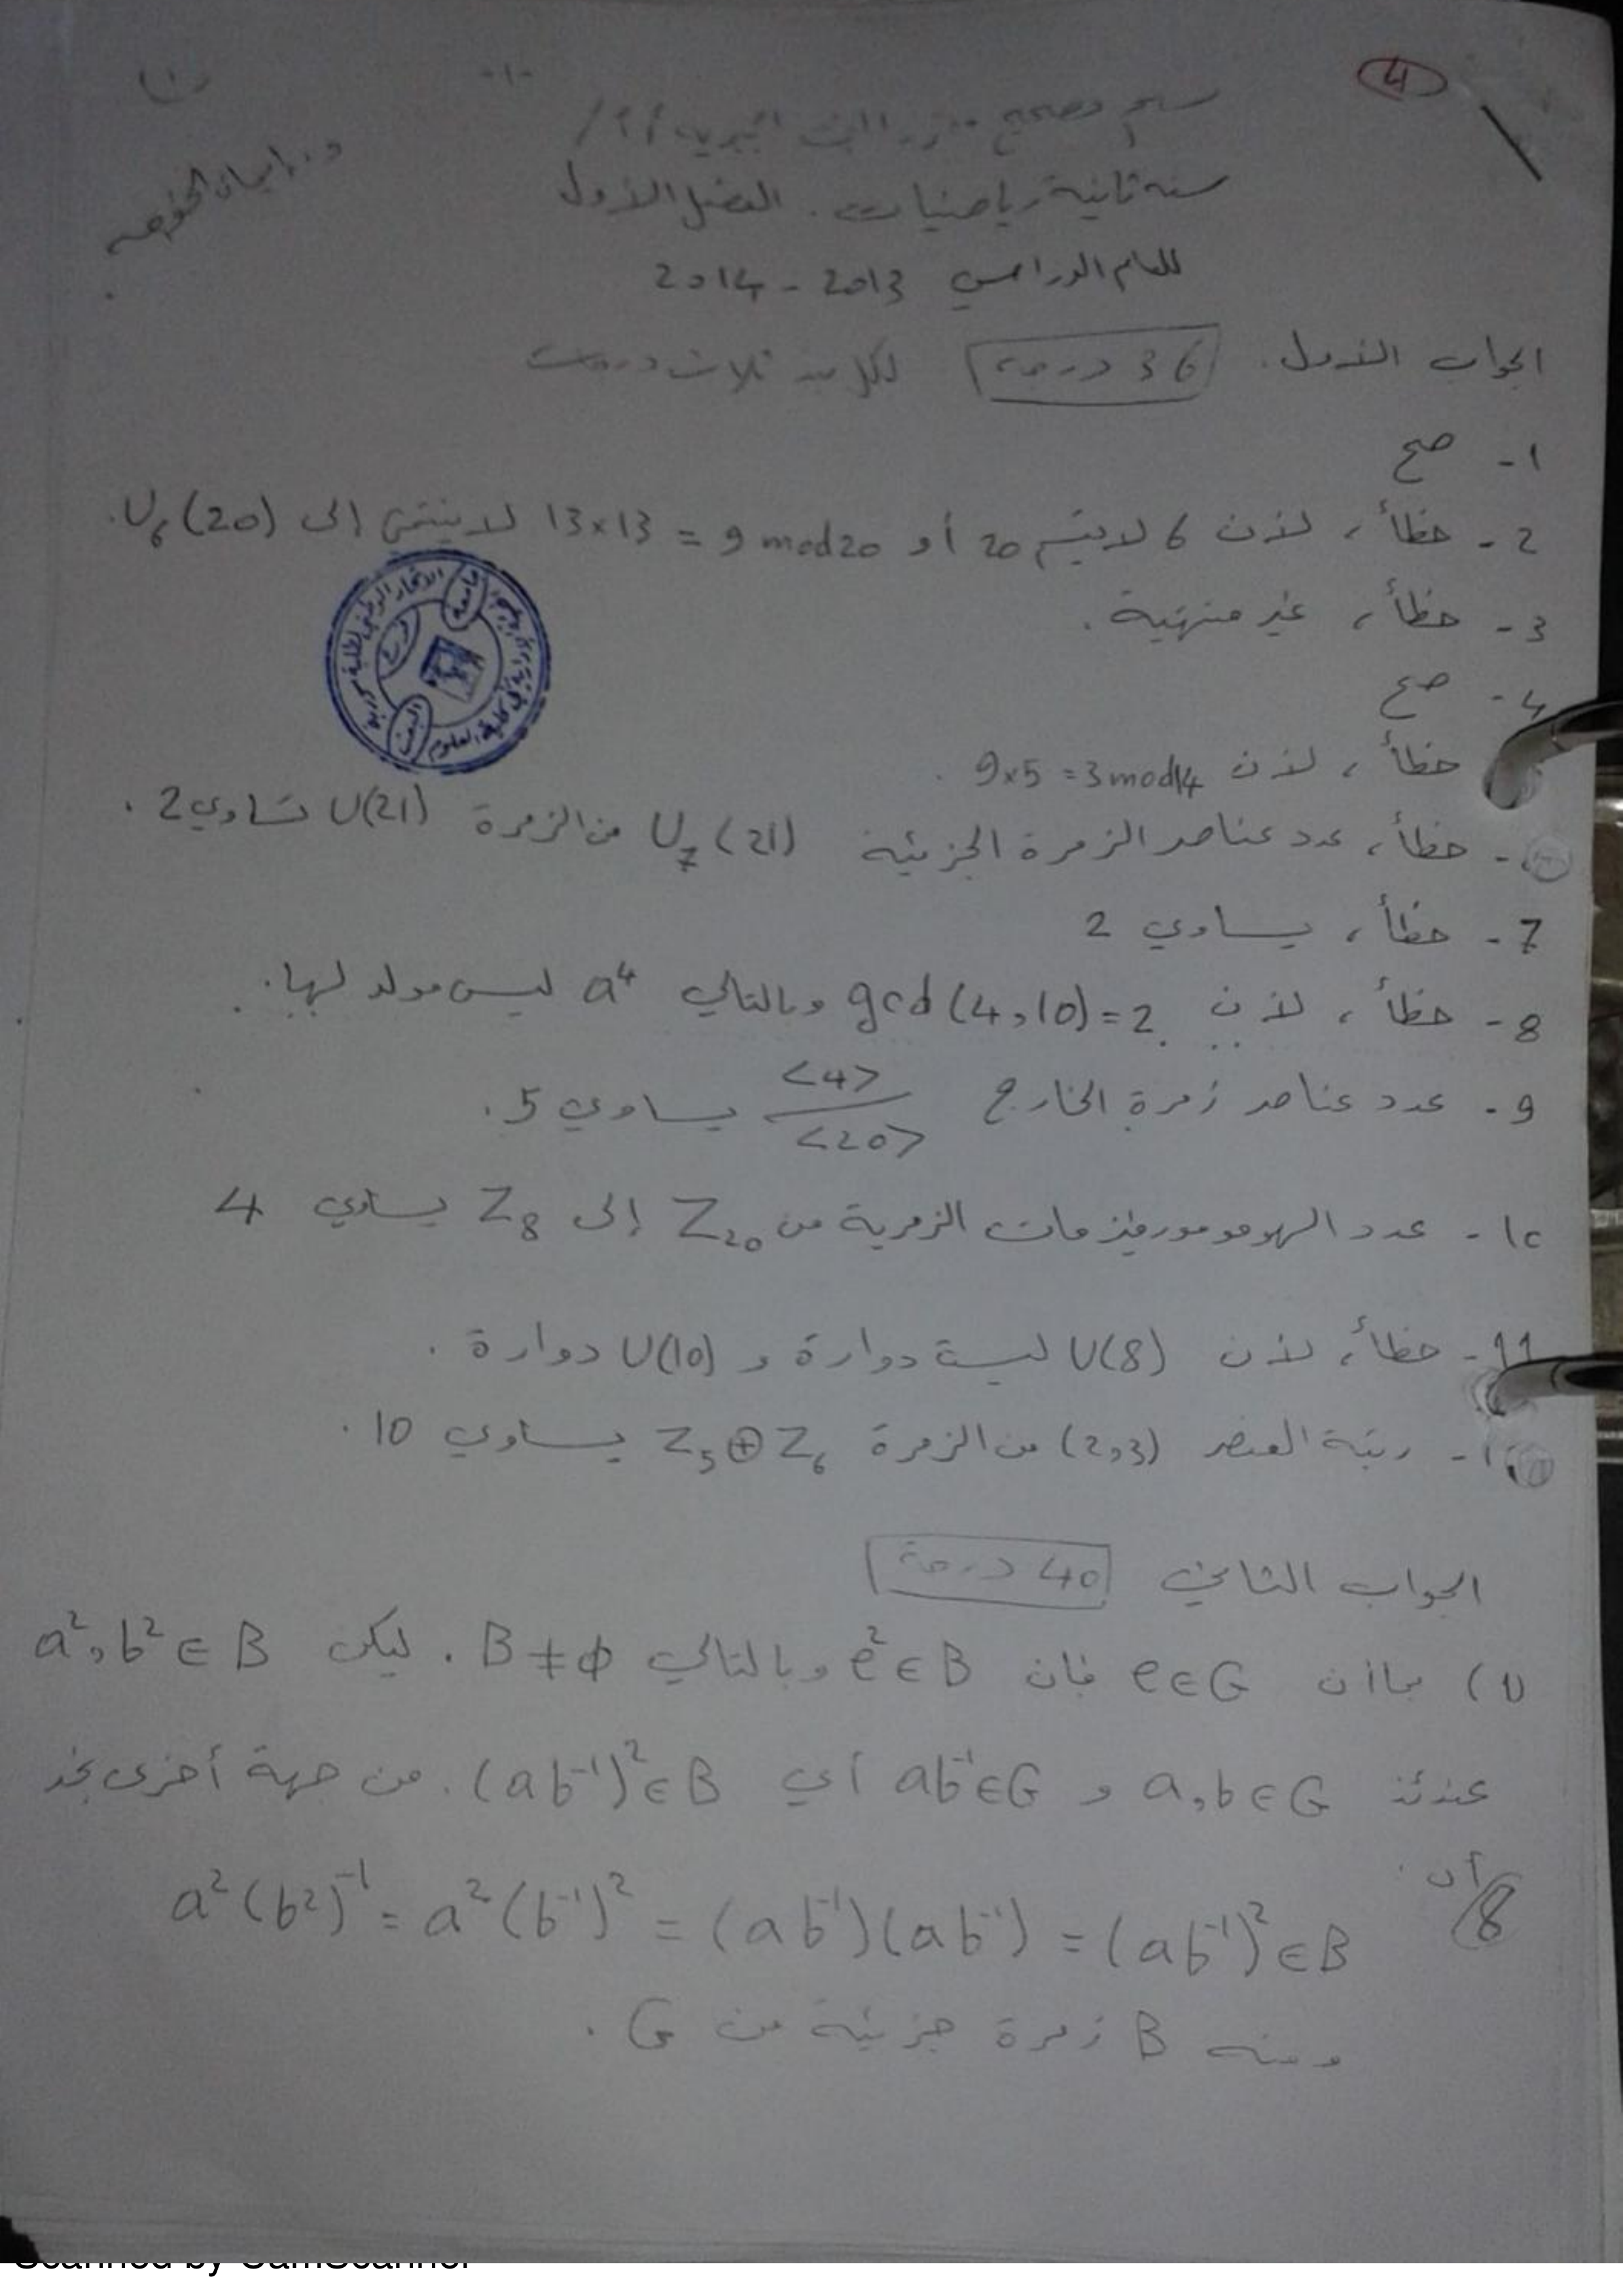 4
-١-
(١)
سلم تصحيح مقرر البنى الجبرية /١/
سنة ثانية رياضيات . الفصل الأول
د. إيمان الخوجة
للعام الدراسي 2013 - 2014
الجواب الأول. 36 درجة لكل بند ثلاث درجات
1- صح
2- خطأ، لأن 6 لا يقسم 20 أو 13×13 = 9 mod 20 لا ينتمي إلى U₆(20).
3- خطأ، غير منتهية.
4- صح
خطأ، لأن 9×5 = 3 mod 14 .
- خطأ، عدد عناصر الزمرة الجزئية U₇(21) من الزمرة U(21) تساوي 2 .
7- خطأ، يساوي 2
8- خطأ، لأن gcd(4,10)=2 وبالتالي a⁴ ليس مولد لها.
9- عدد عناصر زمرة الخارج <4>/<20> يساوي 5 .
10- عدد الهومومورفيزمات الزمرية من Z₂₀ إلى Z₈ يساوي 4
11- خطأ، لأن U(8) ليست دوارة و U(10) دوارة .
1- رتبة العنصر (2,3) من الزمرة Z₅⊕Z₆ يساوي 10 .
الجواب الثاني 40 درجة
1) بما أن e∈G فإن e²∈B وبالتالي B≠ϕ . ليكن a²,b²∈B
عندئذ a,b∈G و ab⁻¹∈G أي (ab⁻¹)²∈B . من جهة أخرى نجد
أن: 8
a²(b²)⁻¹ = a²(b⁻¹)² = (ab⁻¹)(ab⁻¹) = (ab⁻¹)²∈B
ومنه B زمرة جزئية من G .
Scanned by CamScanner